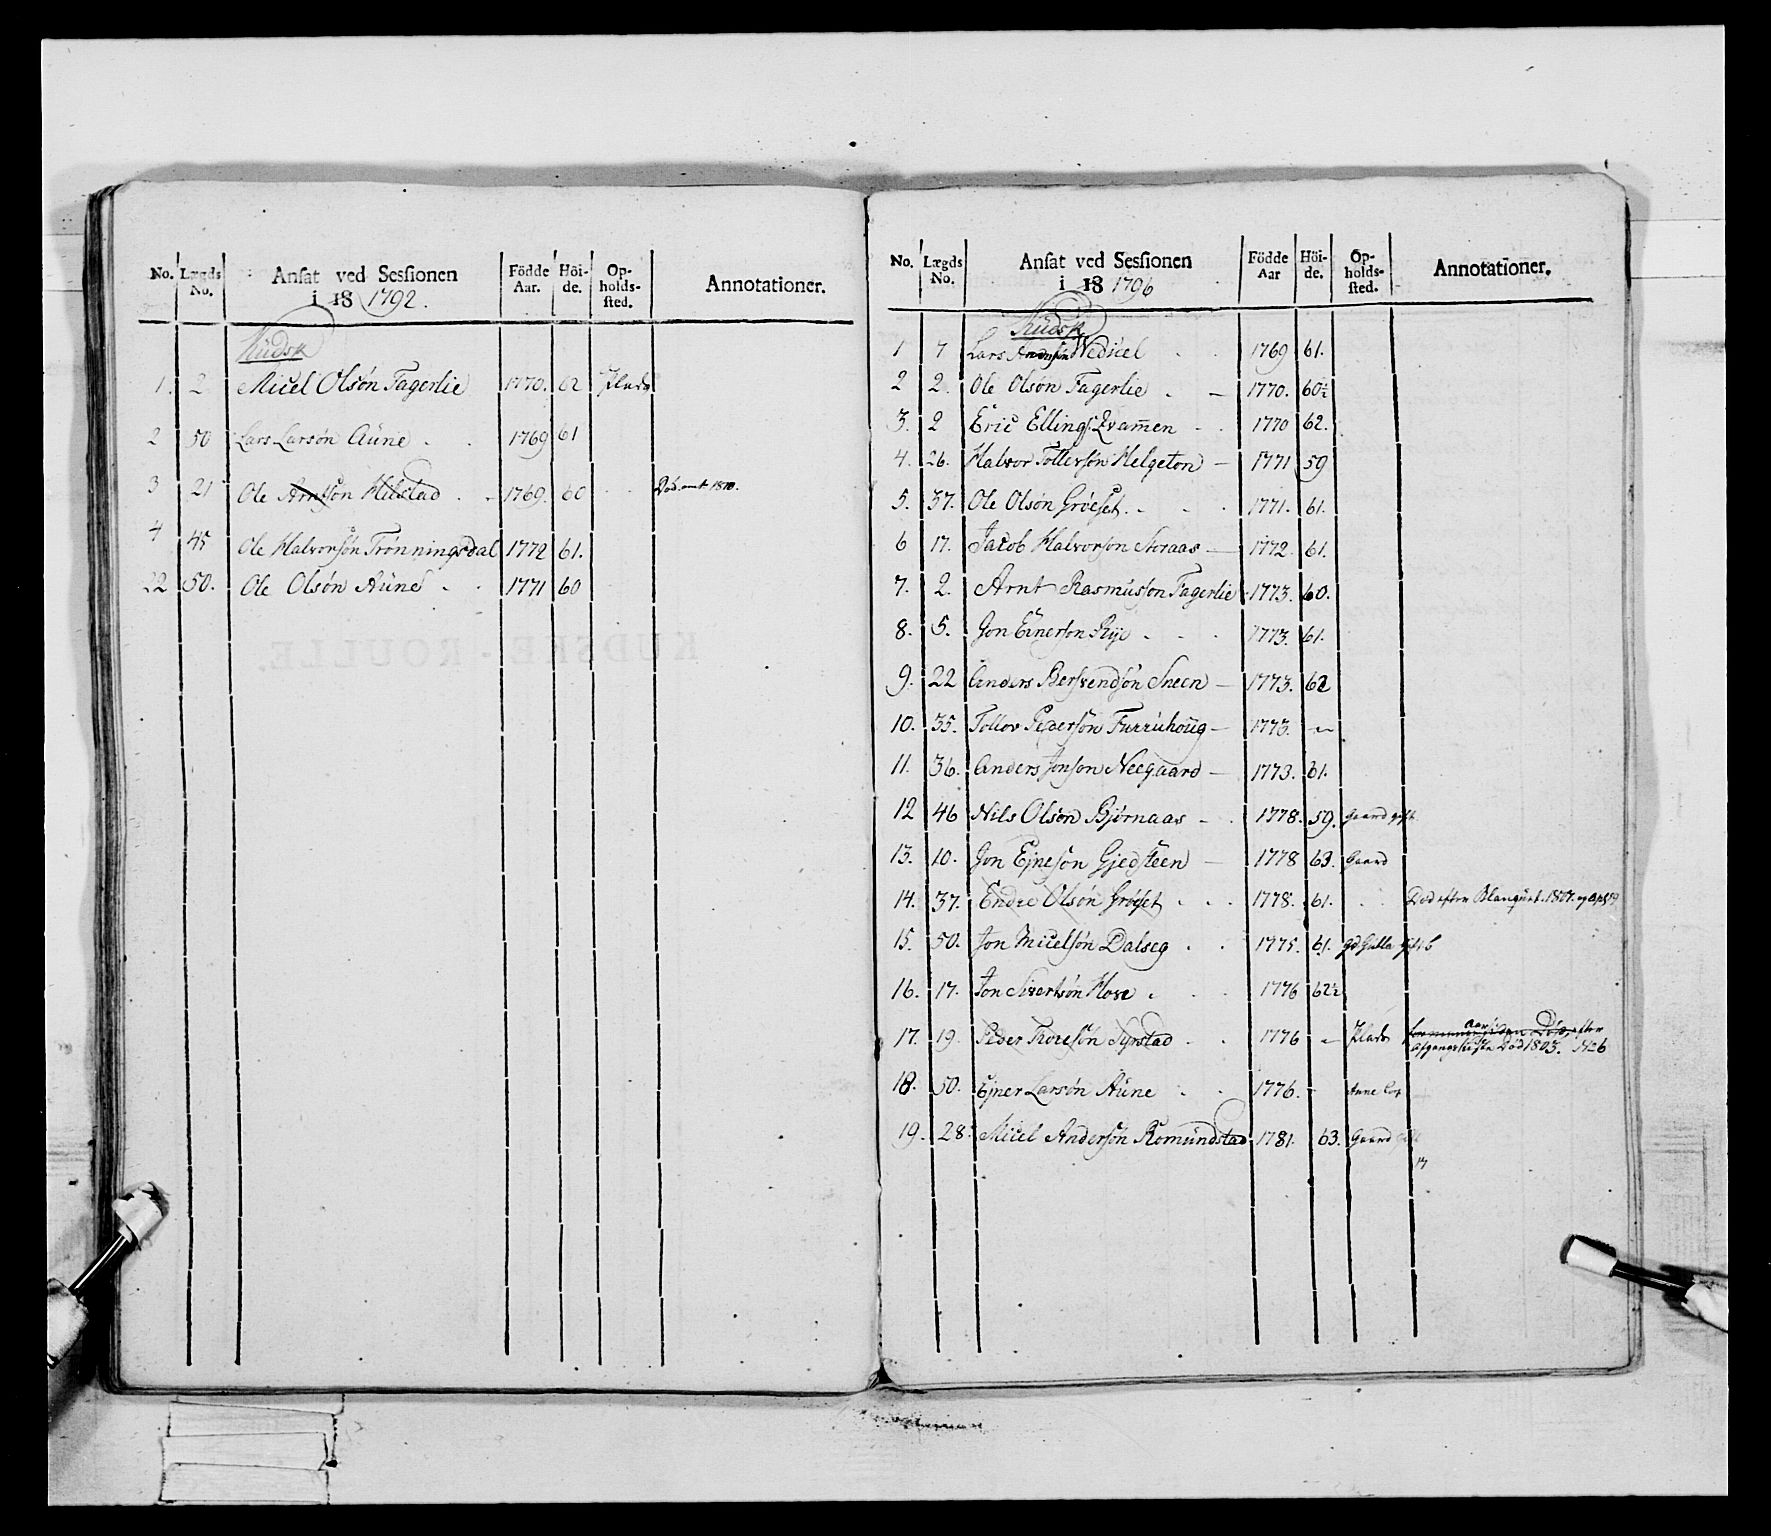 No. Lægds No. Ansat ved Sessionen i 18 1792. Födde Aar. Höi-de. Op-holds-sted. Annotationer.
Küdsk
1. 2 Micel Olsön Fagerlie 1770. 62 Plads
2 50 Lars Larsön Aüne . . 1769 61
3 21 Ole Arntson Hilstad . . 1769. 60 Död amt 1810.
4 45 Ole Halvorsön Trönningsdal 1772 61.
22 50. Ole Olsön Aüne . . 1771 60
KUDSKE-ROULLE.
No. Lægds No. Ansat ved Sessionen i 18 1796 Födde Aar Höi-de. Op-holds-sted. Annotationer.
Küdsk
1 7 Lars Andersön Wedicel . . 1769 61.
2 2. Ole Olsön Fagerlie . – 1770. 60½
3. 2 Eric Ellings. Qvam̄en - . 1770 62.
4. 26. Halvor Tollevsön Helgeton – 1771 59
5. 37. Ole Olsön Gröeset. - . . 1771. 61.
6 17. Jacob Halvorson Storaas – 1772. 61.
7. 2. Arnt Rasmusson Fagerlie 1773. 60.
8. 5. Jon Einerson Rye . . . 1773. 61.
9. 22 Anders Bersvendsön Sneen – 1773. 62
10. 35. Tollov Pedersön Furruhoüg – 1773. –
11. 36. Anders Jonson Neegaard – 1773. 61.
12 46 Nils Olsön Bjørnaas – . 1778. 59. Gaard gift
13. 10. Jon Ejneson Gjedsteen – 1778 63. Gaard
14. 37. Endre Olsön Gröeset . . . 1778. 61. . . Död efter Blanquet. 1807.
15. 50. Jon Micelsön Dalseg . . 1775. 61.
16. 17. Jon Sivertsön Hove . . . 1776 62½
17. 19. Peder Thoresön Syrstad . . 1776 – Plads
efter
Afgangsliste Död 1803.
18. 50. Ejner Larsön Aüne . . 1776. - Aune
19. 28. Micel Andersön Romündstad 1781. 63. Gaard